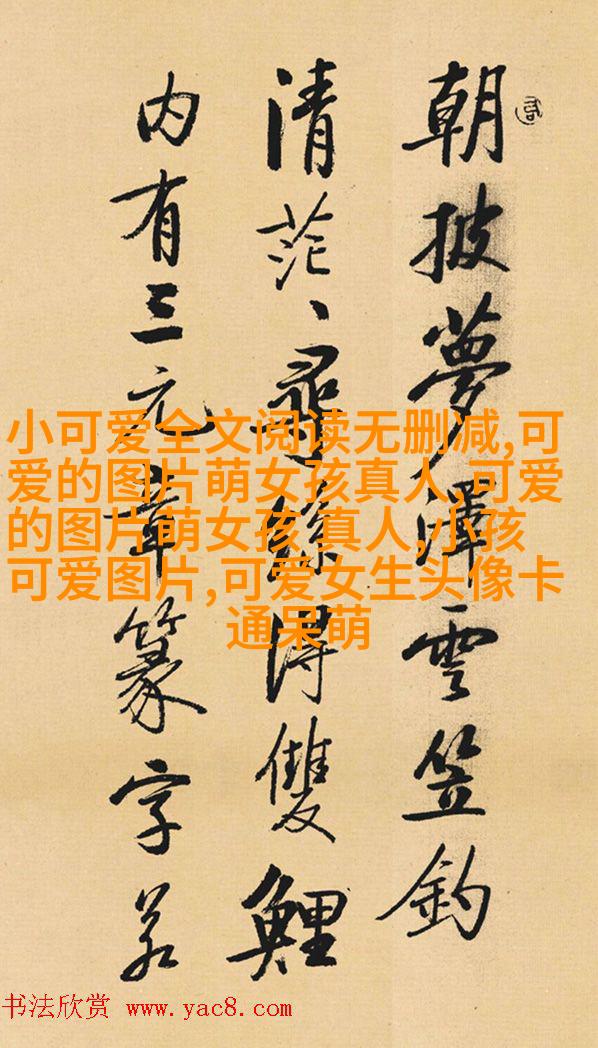 朝披夢澤雲笠釣
清茫、尋絲得雙鯉
内有三元章篆字若
小可爱全文阅读无删减,可
爱的图片萌女孩真人,可爱
的图片萌女孩 真人,小孩
可爱图片,可爱女生头像卡
通呆萌
书法欣赏 www.yac8.com